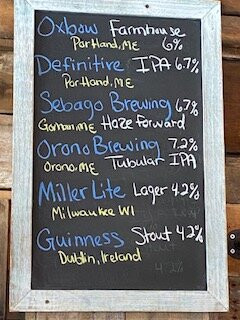 Oxbow Farmhouse
Portland, ME 6%
Definitive IPA 6.7%
Portland, ME
Sebago Brewing 6.7%
Gorham, ME Haze Forward
Orono Brewing 7.2%
Orono, ME Tubular IPA
Miller Lite Lager 4.2%
Milwaukee WI
Guinness Stout 4.2%
Dublin, Ireland
4.2%